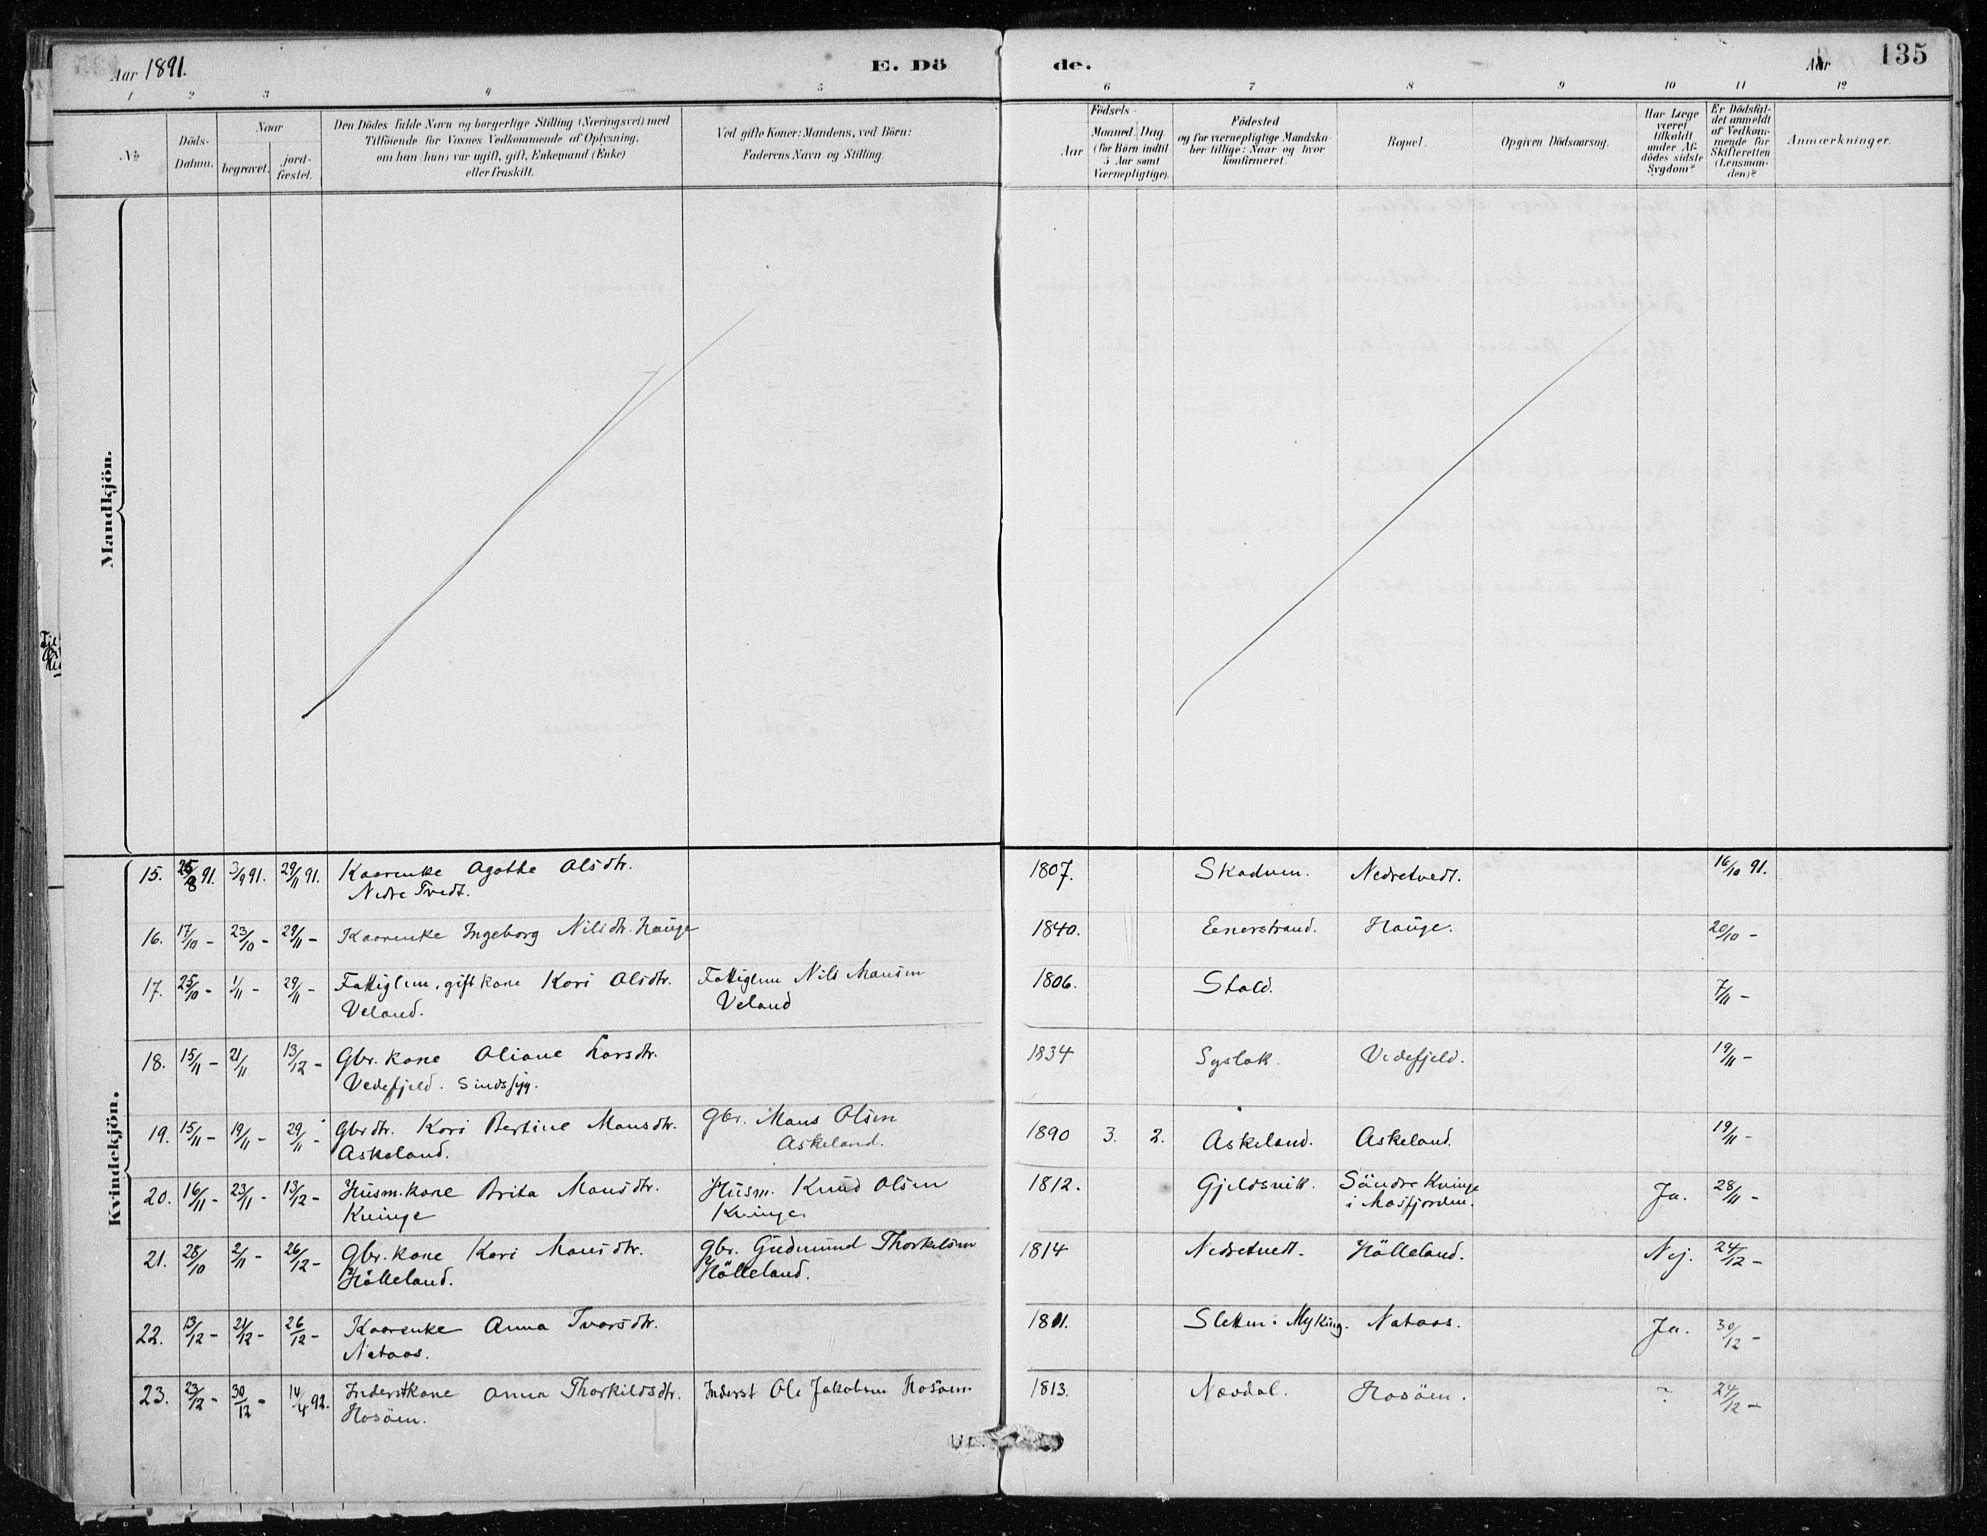 Aar 1891.
E. Döde.
Aar
135
1 2 3 4 5 6 7 8 9 10 11 12
No
Döds-Datum.
Naar
begravet.
jordfæstet.
Den Dödes fulde Navn og borgerlige Stilling (Næringsvei) med
Tilföiende for Voxnes Vedkommende af Oplysning,
om han (hun) var ugift, gift, Enkemand (Enke)
eller fraskilt.
Ved gifte Koner: Mandens, ved Börn:
Faderens Navn og Stilling.
Födsels-
Aar
Maaned. Dag
(for Börn indtil
5 Aar samt
Værnepligtige).
Födested
og for værnepligtige Mandska-
ber tillige: Naar og hvor
konfirmeret.
Bopæl.
Opgiven Dödsaarsag.
Har Læge
været
tilkaldt
under Af-
dödes sidste
Sygdom?
Er Dödsfal-
det anmeldt
af Vedkom-
mende for
Skifteretten
(Lensman-
den)?
Anmærkninger.
Mandkjön.
Kvindekjön.
15. 25/8 91. 3/9 91. 29/11 91. Kaarenke Agathe Olsdtr. 1807. Skodven. Nedretvedt. 16/10 91.
Nedre Tvedt.
16. 17/10 - 23/10 - 29/11 - Kaarenke Ingeborg Nilsdtr. Hauge 1840. Eenerstrand. Hauge. 20/10 -
17. 25/10 - 1/11 - 29/11 - Fattiglem, gift kone Kari Olsdtr. Fattiglem Nils Mansen 1806. Stald. 7/11 -
Veland. Veland
18. 15/11 - 21/11 13/12 - Gbr. kone Oliane Larsdtr. 1834 Syslak. Vedefjeld. 19/11 -
Vedefjeld. Sindssyg.
19. 15/11 - 19/11 - 29/11 - Gbrdtr. Kari Bertine Mansdtr. Gbr. Mans Olsen 1890 3. 2. Askeland. Askeland. 19/11 -
Askeland. Askeland.
20. 16/11 - 23/11 - 13/12 - Husm. kone Brita Mansdtr. Husm. Knud Olsen 1812. Gjeldsvik. Söndre Kvinge Ja. 28/11 -
Kvinge Kvinge. i Masfjorden.
21. 28/10 2/11 - 26/12 - Gbr. kone Kari Mansdtr. Gbr. Gudmund Thorkildsen 1814 Nedretvedt. Hölleland. Nej. 24/12 -
Hölleland. Hölleland.
22. 13/12 - 21/12 - 26/12 - Kaarenke Anna Ivarsdtr. 1811. Sletten i Myking. Nataas. Ja. 30/12 -
Nataas.
23. 23/12 - 30/12 - 14/4 92. Inderstkone Anna Thorkildsdtr. Inderst Ole Jakobsen Hosöen. 1813. Nævdal. Hosöen. ? 24/12 -
Hosöen.